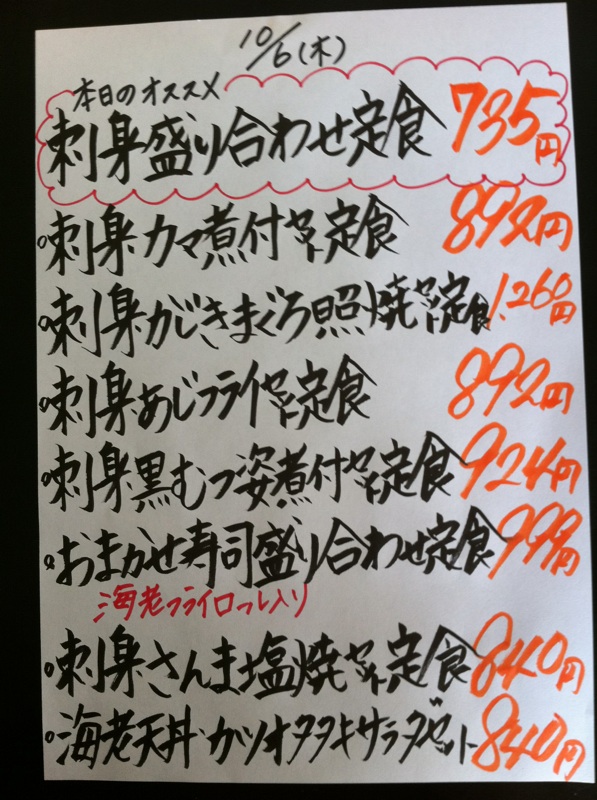 10/6(木)
本日のオススメ
刺身盛り合わせ定食 735円
刺身カマ煮付セット定食 892円
刺身かじきまぐろ照焼セット定食 1,260円
刺身あじフライセット定食 892円
刺身黒むつ姿煮付セット定食 924円
おまかせ寿司盛り合わせ定食 999円
海老フライロール入り
刺身さんま塩焼セット定食 840円
海老天丼・カツオタタキサラダセット 840円